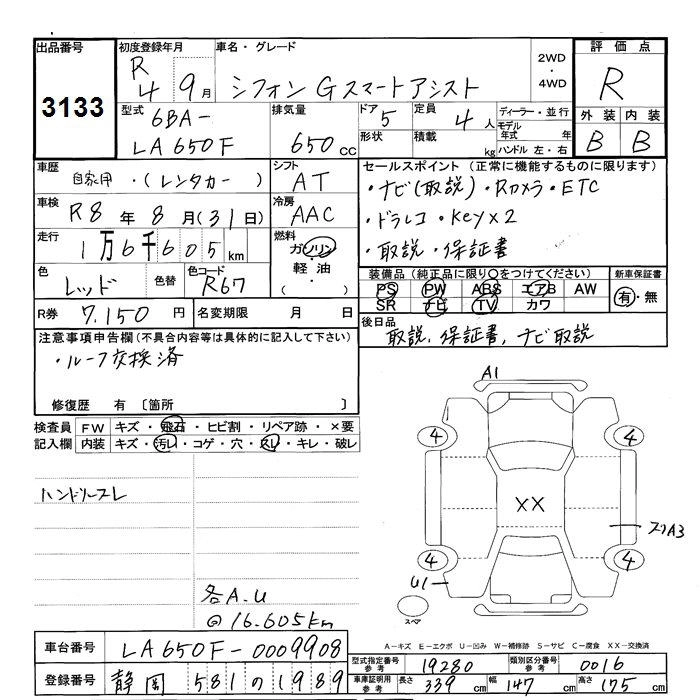 出品番号 初度登録年月 車名・グレード 評価点
3133 R4 9月 シフォン Gスマートアシスト 2WD・4WD R
型式 排気量 ドア 定員 ディーラー・並行 外装 内装
6BA-LA650F 650cc 5 4人 モデル年式 年 B B
形状 積載 kg ハンドル 左・右
車歴 シフト セールスポイント(正常に機能するものに限ります)
自家用・(レンタカー) AT ・ナビ(取説)・Rカメラ・ETC
車検 冷房 ・ドラレコ・Key×2
R8年8月(31日) AAC ・取説・保証書
走行 燃料
1万6千605km ガソリン 軽油・( )
色 色替 色コード 装備品(純正品に限り○をつけてください) 新車保証書
レッド R67 PS PW ABS エアB AW 有・無
SR ナビ TV カワ
R券 7.150円 名変期限 月 日 後日品
取説、保証書、ナビ取説
注意事項申告欄(不具合内容等は具体的に記入して下さい)
・ルーフ交換済
修復歴 有〔箇所 〕
検査員記入欄 FW キズ・飛石・ヒビ割・リペア跡・×要
内装 キズ・汚レ・コゲ・穴・スレ・キレ・破レ
ハンドリースレ
各A.U
@16.605km
A1
4 4
XX
スリA3
4 4
U1
スペア
A-キズ E-エクボ U-凹み W-補修跡 S-サビ C-腐食 XX-交換済
車台番号 LA650F-0009908
型式指定番号参考 19280 類別区分番号参考 0016
登録番号 静岡581の1989
車庫証明用参考 長さ 339cm 幅 147cm 高さ 175cm